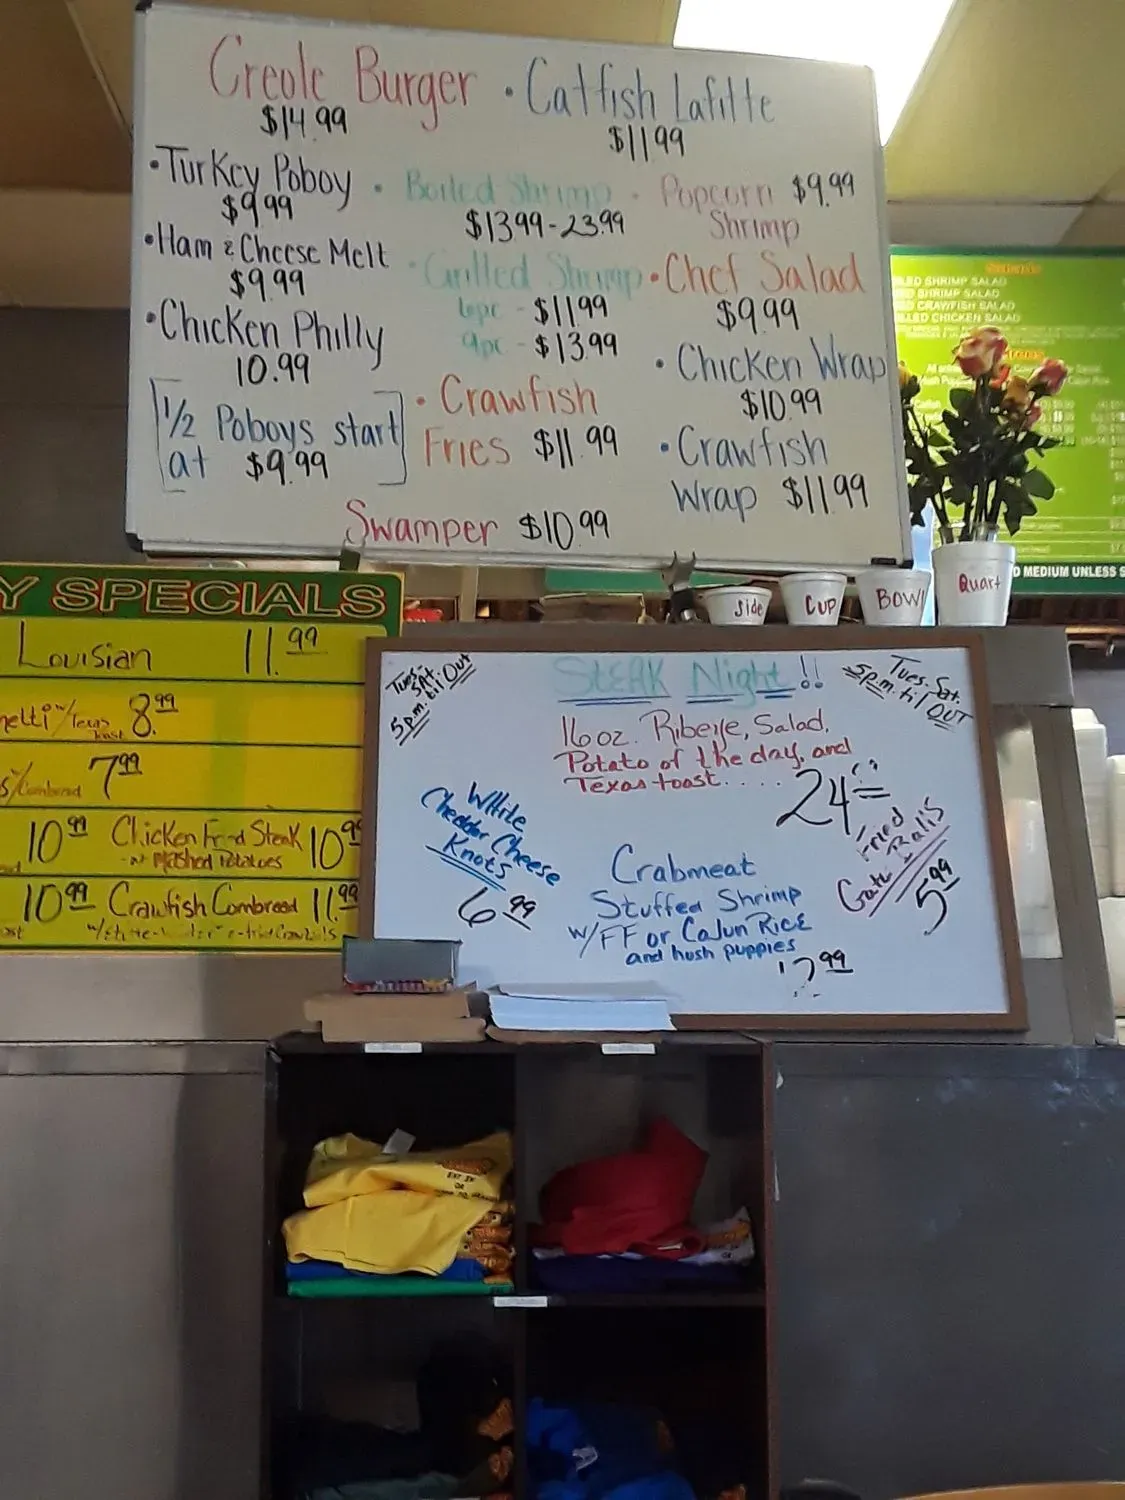 Creole Burger
$14.99
• Catfish Lafitte
$11.99
• Turkey Poboy
$9.99
• Ham & Cheese Melt
$9.99
• Chicken Philly
10.99
[1/2 Poboys start
at $9.99]
• Boiled Shrimp
$13.99-23.99
• Grilled Shrimp
6pc - $11.99
9pc - $13.99
• Crawfish
Fries $11.99
• Popcorn $9.99
Shrimp
• Chef Salad
$9.99
• Chicken Wrap
$10.99
• Crawfish
Wrap $11.99
Swamper $10.99
SHRIMP SALAD
SHRIMP SALAD
CRAWFISH SALAD
CHICKEN SALAD
MEDIUM UNLESS
Side
CUP
BOWl
Quart
Y SPECIALS
Louisian 11.99
w/Texas toast 8.99
7.99
10.99 Chicken Fried Steak 10.99
w/ Mashed Potatoes
10.99 Crawfish Cornbread 11.99
Tues-
SAt.
5p.m. til OUT
STEAK Night!!
Tues.-Sat.
5p.m. til OUT
16oz. Ribeye, Salad,
Potato of the day, and
Texas toast....
24.99
White
Cheddar Cheese
Knots
6.99
Fried
Gata-Balls
5.99
Crabmeat
Stuffed Shrimp
w/FF or Cajun Rice
and hush puppies